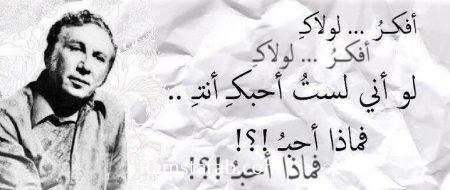 أفكرُ ... لولاكـِ
أفكرُ ... لولاكـِ
لو أني لستُ أحبكـِ أنتـِ ..
فماذا أحبُ !؟!
فماذا أحبُ !؟!